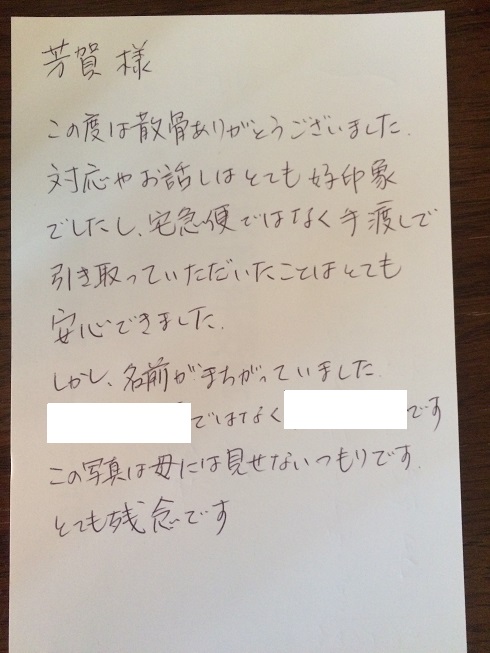 芳賀 様
この度は散骨ありがとうございました.
対応やお話しはとても好印象
でしたし、宅急便ではなく手渡しで
引き取っていただいたことはとても
安心できました.
しかし、名前がまちがっていました.
ではなく です
この写真は母には見せないつもりです.
とても残念です